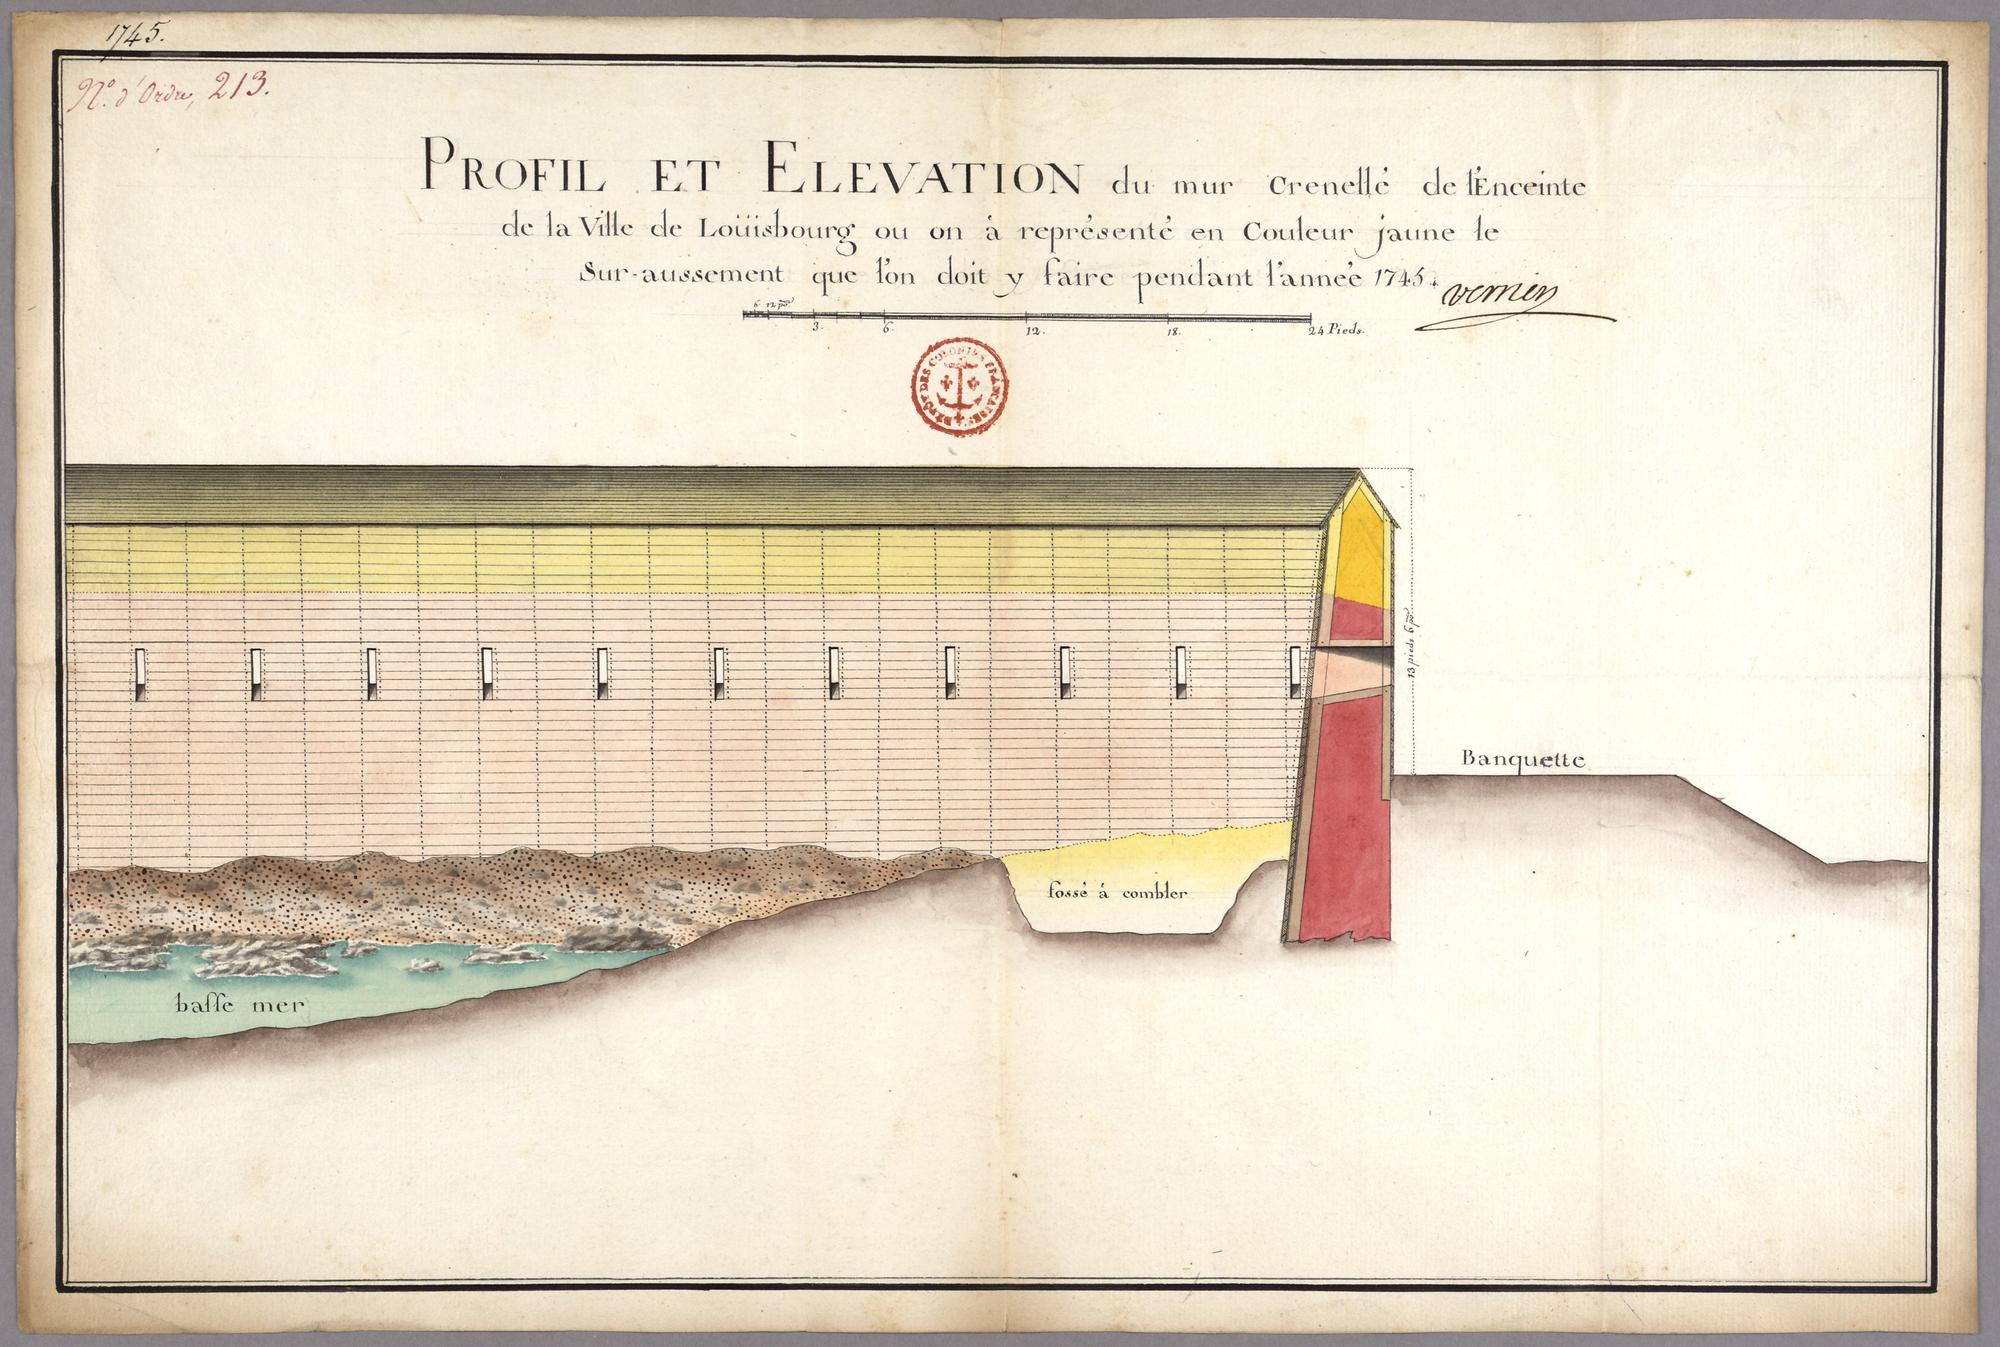 1745.
N.º d'Ordre, 213.
PROFIL ET ELEVATION du mur Crenellé de l'Enceinte
de la Ville de Loüisbourg ou on à représenté en Couleur jaune le
Sur-aussement que l'on doit y faire pendant l'année 1745.
6. 12 po.
3. 6. 12. 18. 24 Pieds.
DÉPÔT DES COLONIES FRANÇAISES
13 pieds 6 po.
Banquette
fossé à combler
basse mer